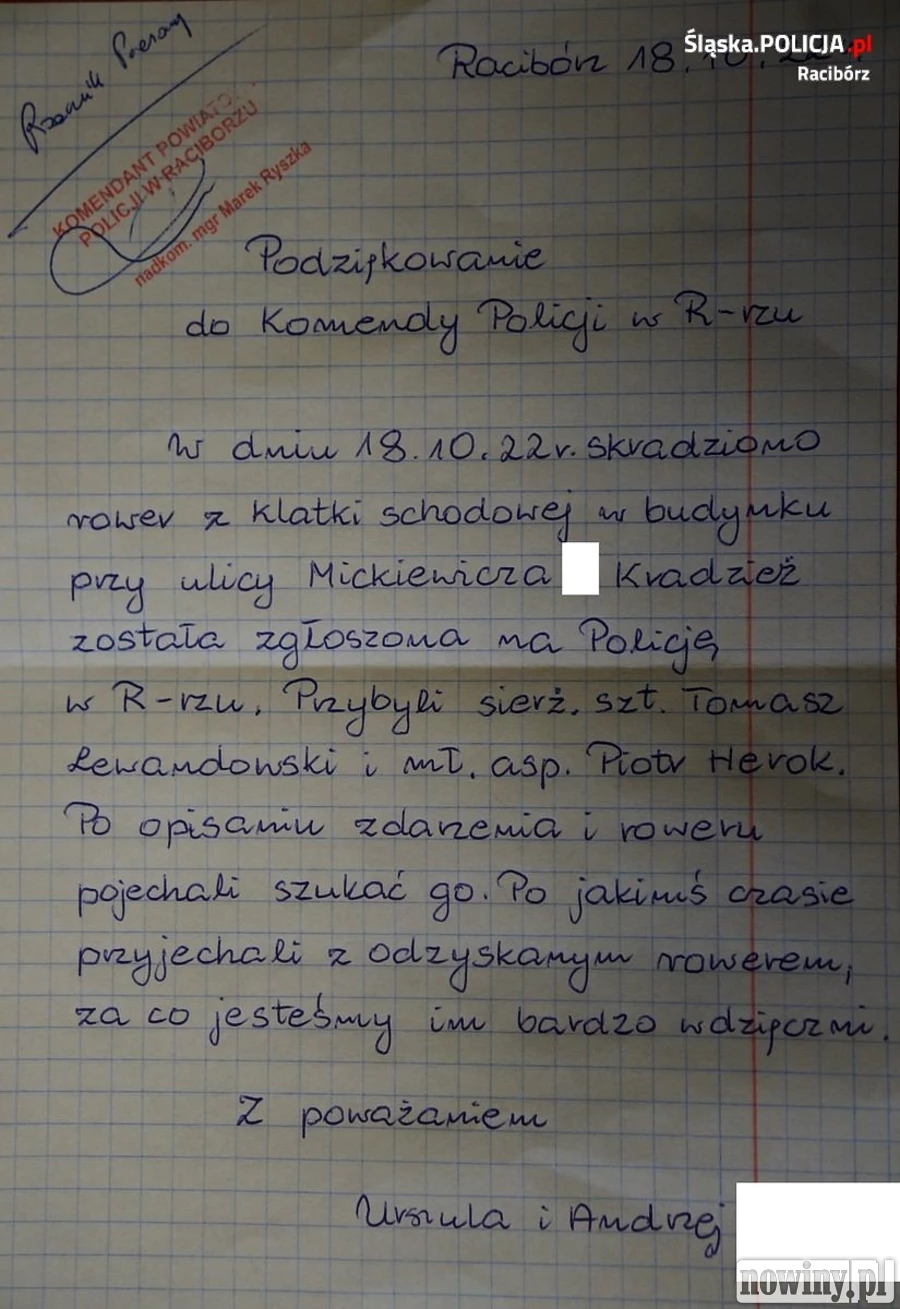 Śląska.POLICJA.pl
Racibórz
Racibórz 18.10.
Rzecznik Prasowy
KOMENDANT POWIATO
POLICJI W RACIBORZU
nadkom. mgr Marek Ryszka
Podziękowanie
do Komendy Policji w R-rzu
W dniu 18.10.22r. skradziono
rower z klatki schodowej w budynku
przy ulicy Mickiewicza Kradzież
została zgłoszona na Policję
w R-rzu. Przybyli sierż. szt. Tomasz
Lewandowski i mł. asp. Piotr Herok.
Po opisaniu zdarzenia i roweru
pojechali szukać go. Po jakimś czasie
przyjechali z odzyskanym rowerem,
za co jesteśmy im bardzo wdzięczni.
Z poważaniem
Urszula i Andrzej
nowiny.pl